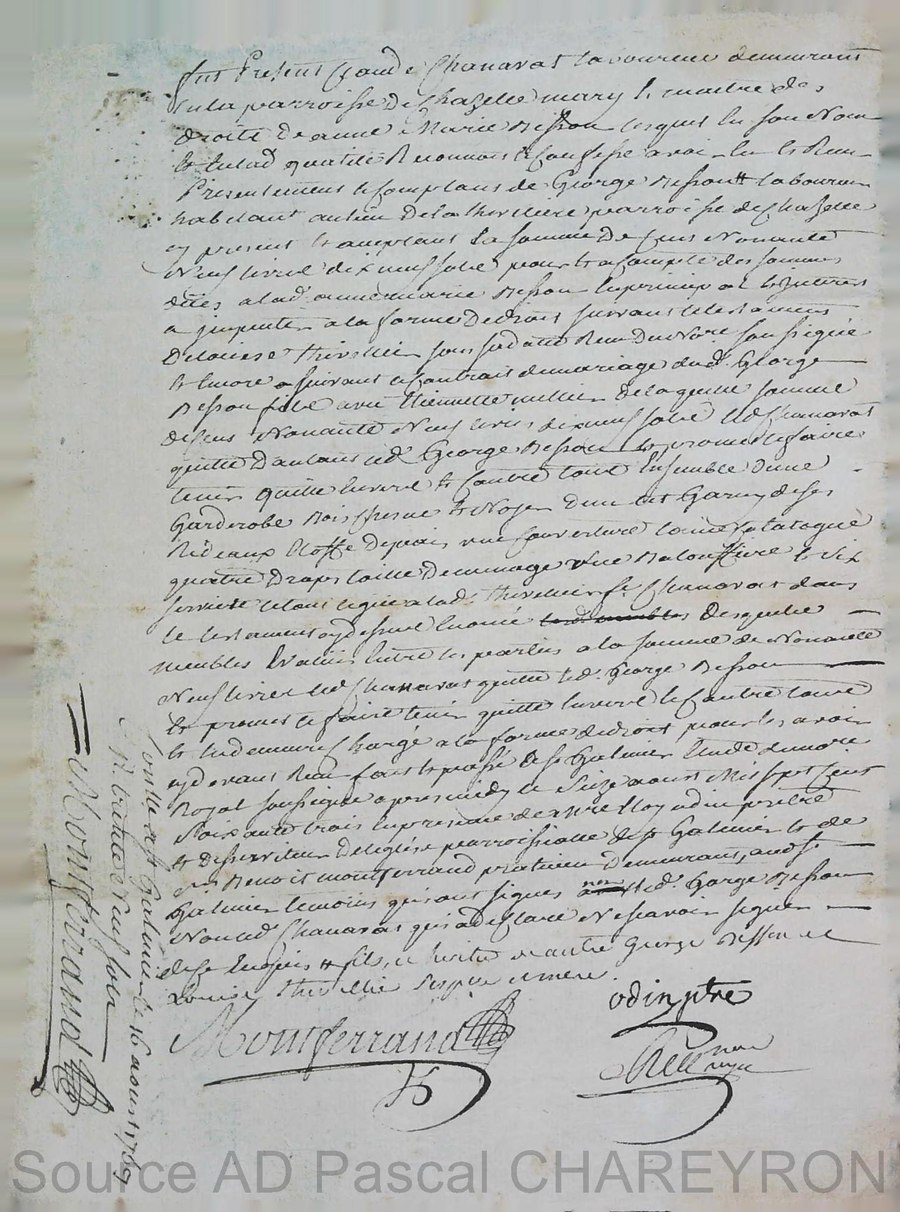 fut Present Claude Chanavat laboureur demeurant
en la parroisse de Chazelle mary & maitre des
droits de anne Marie Besson lequel en son Nom
et en lad. qualité Reconnois et Confesse avoir eu et Reçu
Presentement et Comptant de George Besson # laboureur
habitant au lieu de la thevilliere parroisse de Chazelle
cy present & acceptant la somme de Cent Nonante
Neuf livres dix neuf sols pour & a Compte des sommes
dües a lad. anne marie Besson en principal & Interets
a imputer a la forme de droit suivant le testament
de Louise thivellier sous sa datte Reçu du No.re soussigné
et Encore a suivant le Contrait de mariage dud. George
Besson fils avec Etiennette de laquelle somme
de Cent Nonante Neuf livres dix neuf sols led. Chanavat
quitte d'autant led. George Besson & promet le faire
tenir quitte Envers & Contre tous Ensemble d'une
Garderobe Bois fresne & Noyer d'un lit Garny de ses
Rideaux Etoffe du pais une Couverture laine Catalogne
quatre draps toille de menage une & six
serviette le tout legué a lad. par Chanavat dans
le testament cy dessus Enoncé desquels
meubles Evalués Entre les parties a la somme de Nonante
Neuf livres led. Chanavat quitte led. George Besson
& promet le faire tenir quitte Envers & Contre tous
& led. demeure Chargé a la forme de droit pour les avoir
cy devant Reçu fait & passé a St Galmier Etude du no.re
Royal soussigné apres midy le Seize aoust Mil sept Cent
Soixante trois En presence de odin prêtre
& Desserviteur de l'eglise parroissialle de St Galmier & de
Benoit montferrand praticien demeurant aud. St
Galmier temoins qui ont signés non led. George Besson
Non led. Chanavat qui a declaré Ne sçavoir signer
de ce Enquis # fils, & heritier de autre George Besson et
Louise thevellier ses pere et mere.
odin ptre
Montferrand
no.re royal
Conllé a St Galmier le 16 aoust 1763
R. trente Neuf sols
Montferrand
Source AD Pascal CHAREYRON